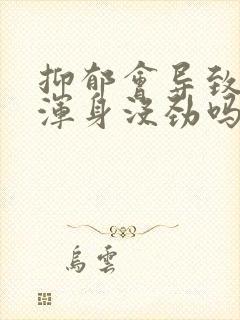 抑郁會导致
渾身没劲吗
烏雲